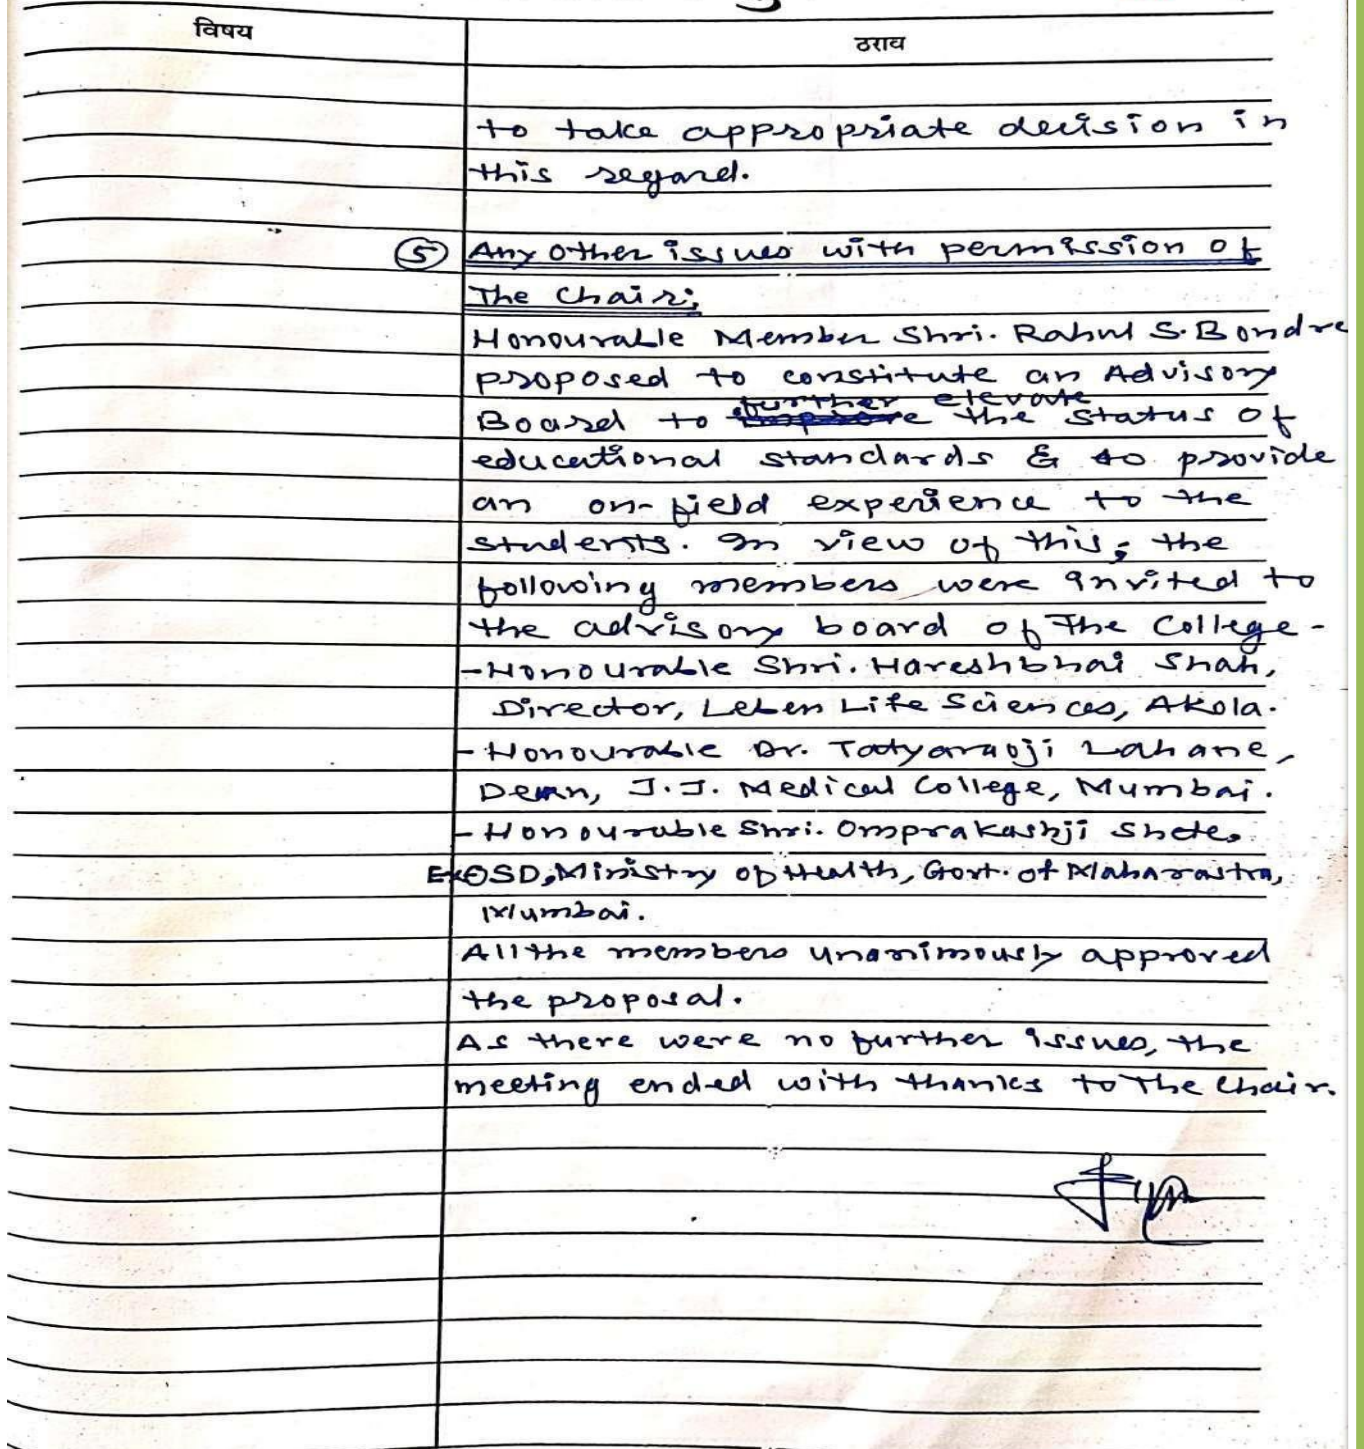 विषय
ठराव
to take appropriate decision in
this regard.
⑤ Any other issues with permission of
The Chair;
Honourable Member Shri. Rahul S. Bondre
proposed to constitute an Advisory
further elevate
Board to the status of
educational standards & to provide
an on-field experience to the
students. In view of this, the
following members were invited to
the advisory board of The College-
-Honourable Shri. Hareshbhai Shah,
Director, Leben Life Sciences, Akola.
-Honourable Dr. Tatyaraoji Lahane,
Dean, J.J. Medical College, Mumbai.
-Honourable Shri. Omprakashji Shete,
Ex OSD, Ministry of Health, Govt. of Maharastra,
Mumbai.
All the members unanimously approved
the proposal.
As there were no further issues, the
meeting ended with thanks to The Chair.